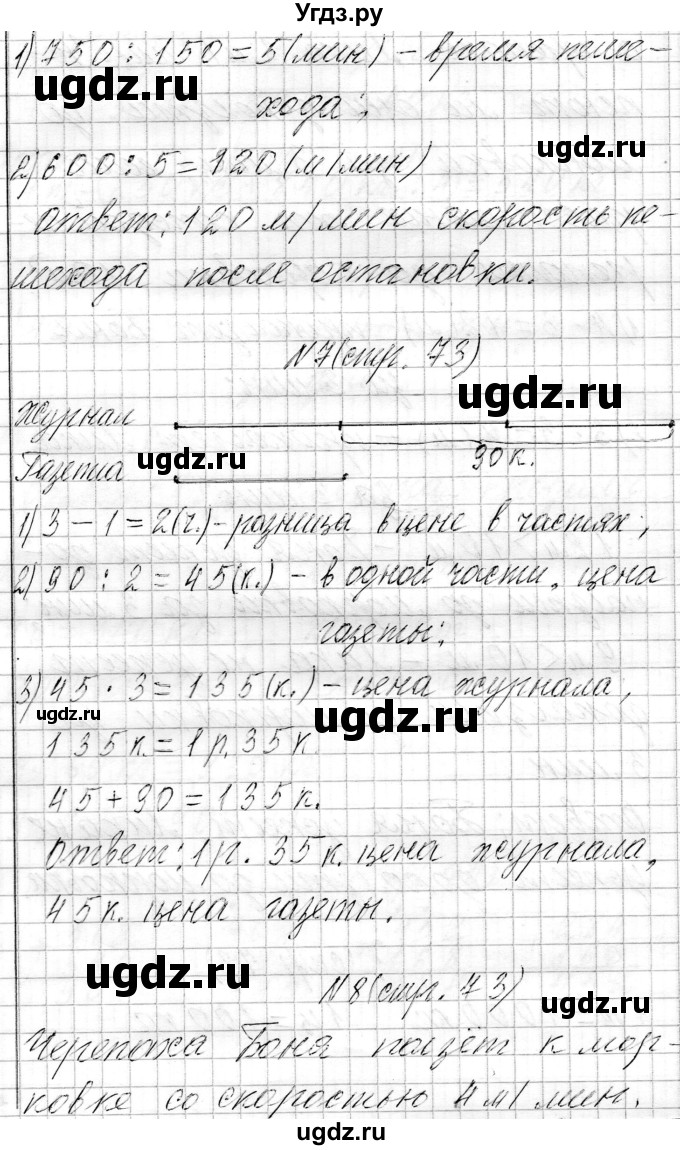 Угдз.ру
1) 750 : 150 = 5 (мин) – время пеше-
ugdz.ru
хода;
ugdz.ru
2) 600 : 5 = 120 (м/мин)
Ответ: 120 м/мин скорость пе-
шехода после остановки.
N7 (стр. 73)
ugdz.ru
Журнал
90 к.
Газета
ugdz.ru
1) 3 – 1 = 2 (ч.) – разница в цене в частях;
2) 90 : 2 = 45 (к.) – в одной части, цена
газеты;
3) 45 · 3 = 135 (к.) – цена журнала,
ugdz.ru
ugdz.ru
135 к. = 1 р. 35 к
45 + 90 = 135 к.
Ответ: 1 р. 35 к. цена журнала,
45 к. цена газеты.
ugdz.ru
N8 (стр. 73)
ugdz.ru
Черепаха Боня ползёт к мор-
ковке со скоростью 4 м/мин.
ugdz.ru